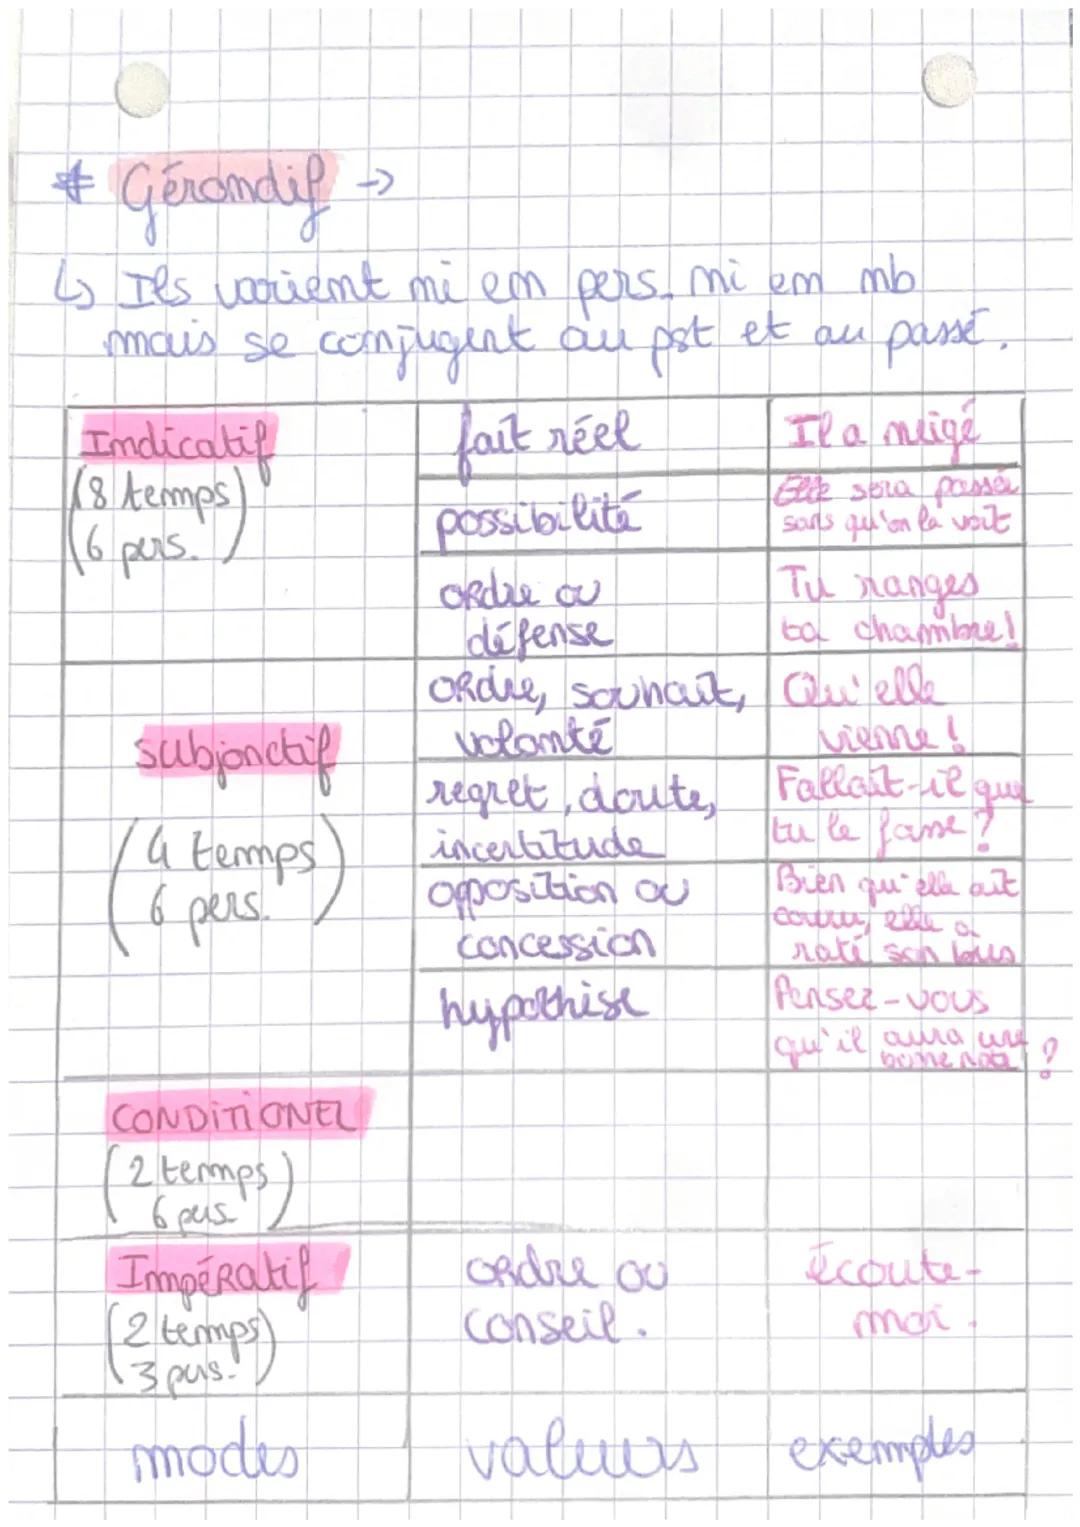 * Gérondif →
↳ Ils varient ni en pers. ni en nb
mais se conjugent au pst et au passé.
Indicatif
(8 temps)
(6 pers.)
fait réel
Il a neigé
possibilité
Elle sera passée
sans qu'on la voit
ordre ou
défense
Tu ranges
ta chambre!
subjonctif
(4 temps)
6 pers.
ordre, souhait,
volonté
Qu'elle
vienne !
regret, doute,
incertitude
Fallait-il que
tu le fasse ?
opposition ou
concession
Bien qu'elle ait
couru, elle a
raté son bus
hypothise
Pensez-vous
qu'il aura une
bonne note ?
CONDITIONEL
(2 temps)
6 pers
Impératif
(2 temps)
3 pers.
ordre ou
conseil.
écoute-
moi.
modes
valeurs
exemples